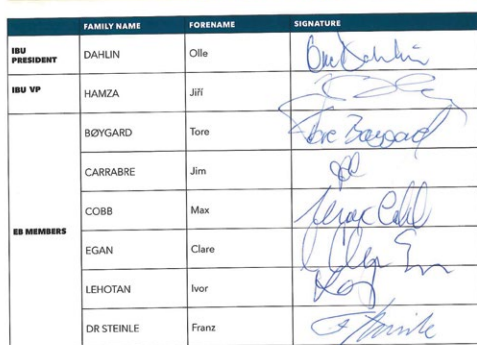 FAMILY NAME FORENAME SIGNATURE
IBU PRESIDENT DAHLIN Olle Olle Dahlin
IBU VP HAMZA Jiří
EB MEMBERS
BØYGARD Tore Tore Bøygard
CARRABRE Jim
COBB Max Max Cobb
EGAN Clare
LEHOTAN Ivor
DR STEINLE Franz